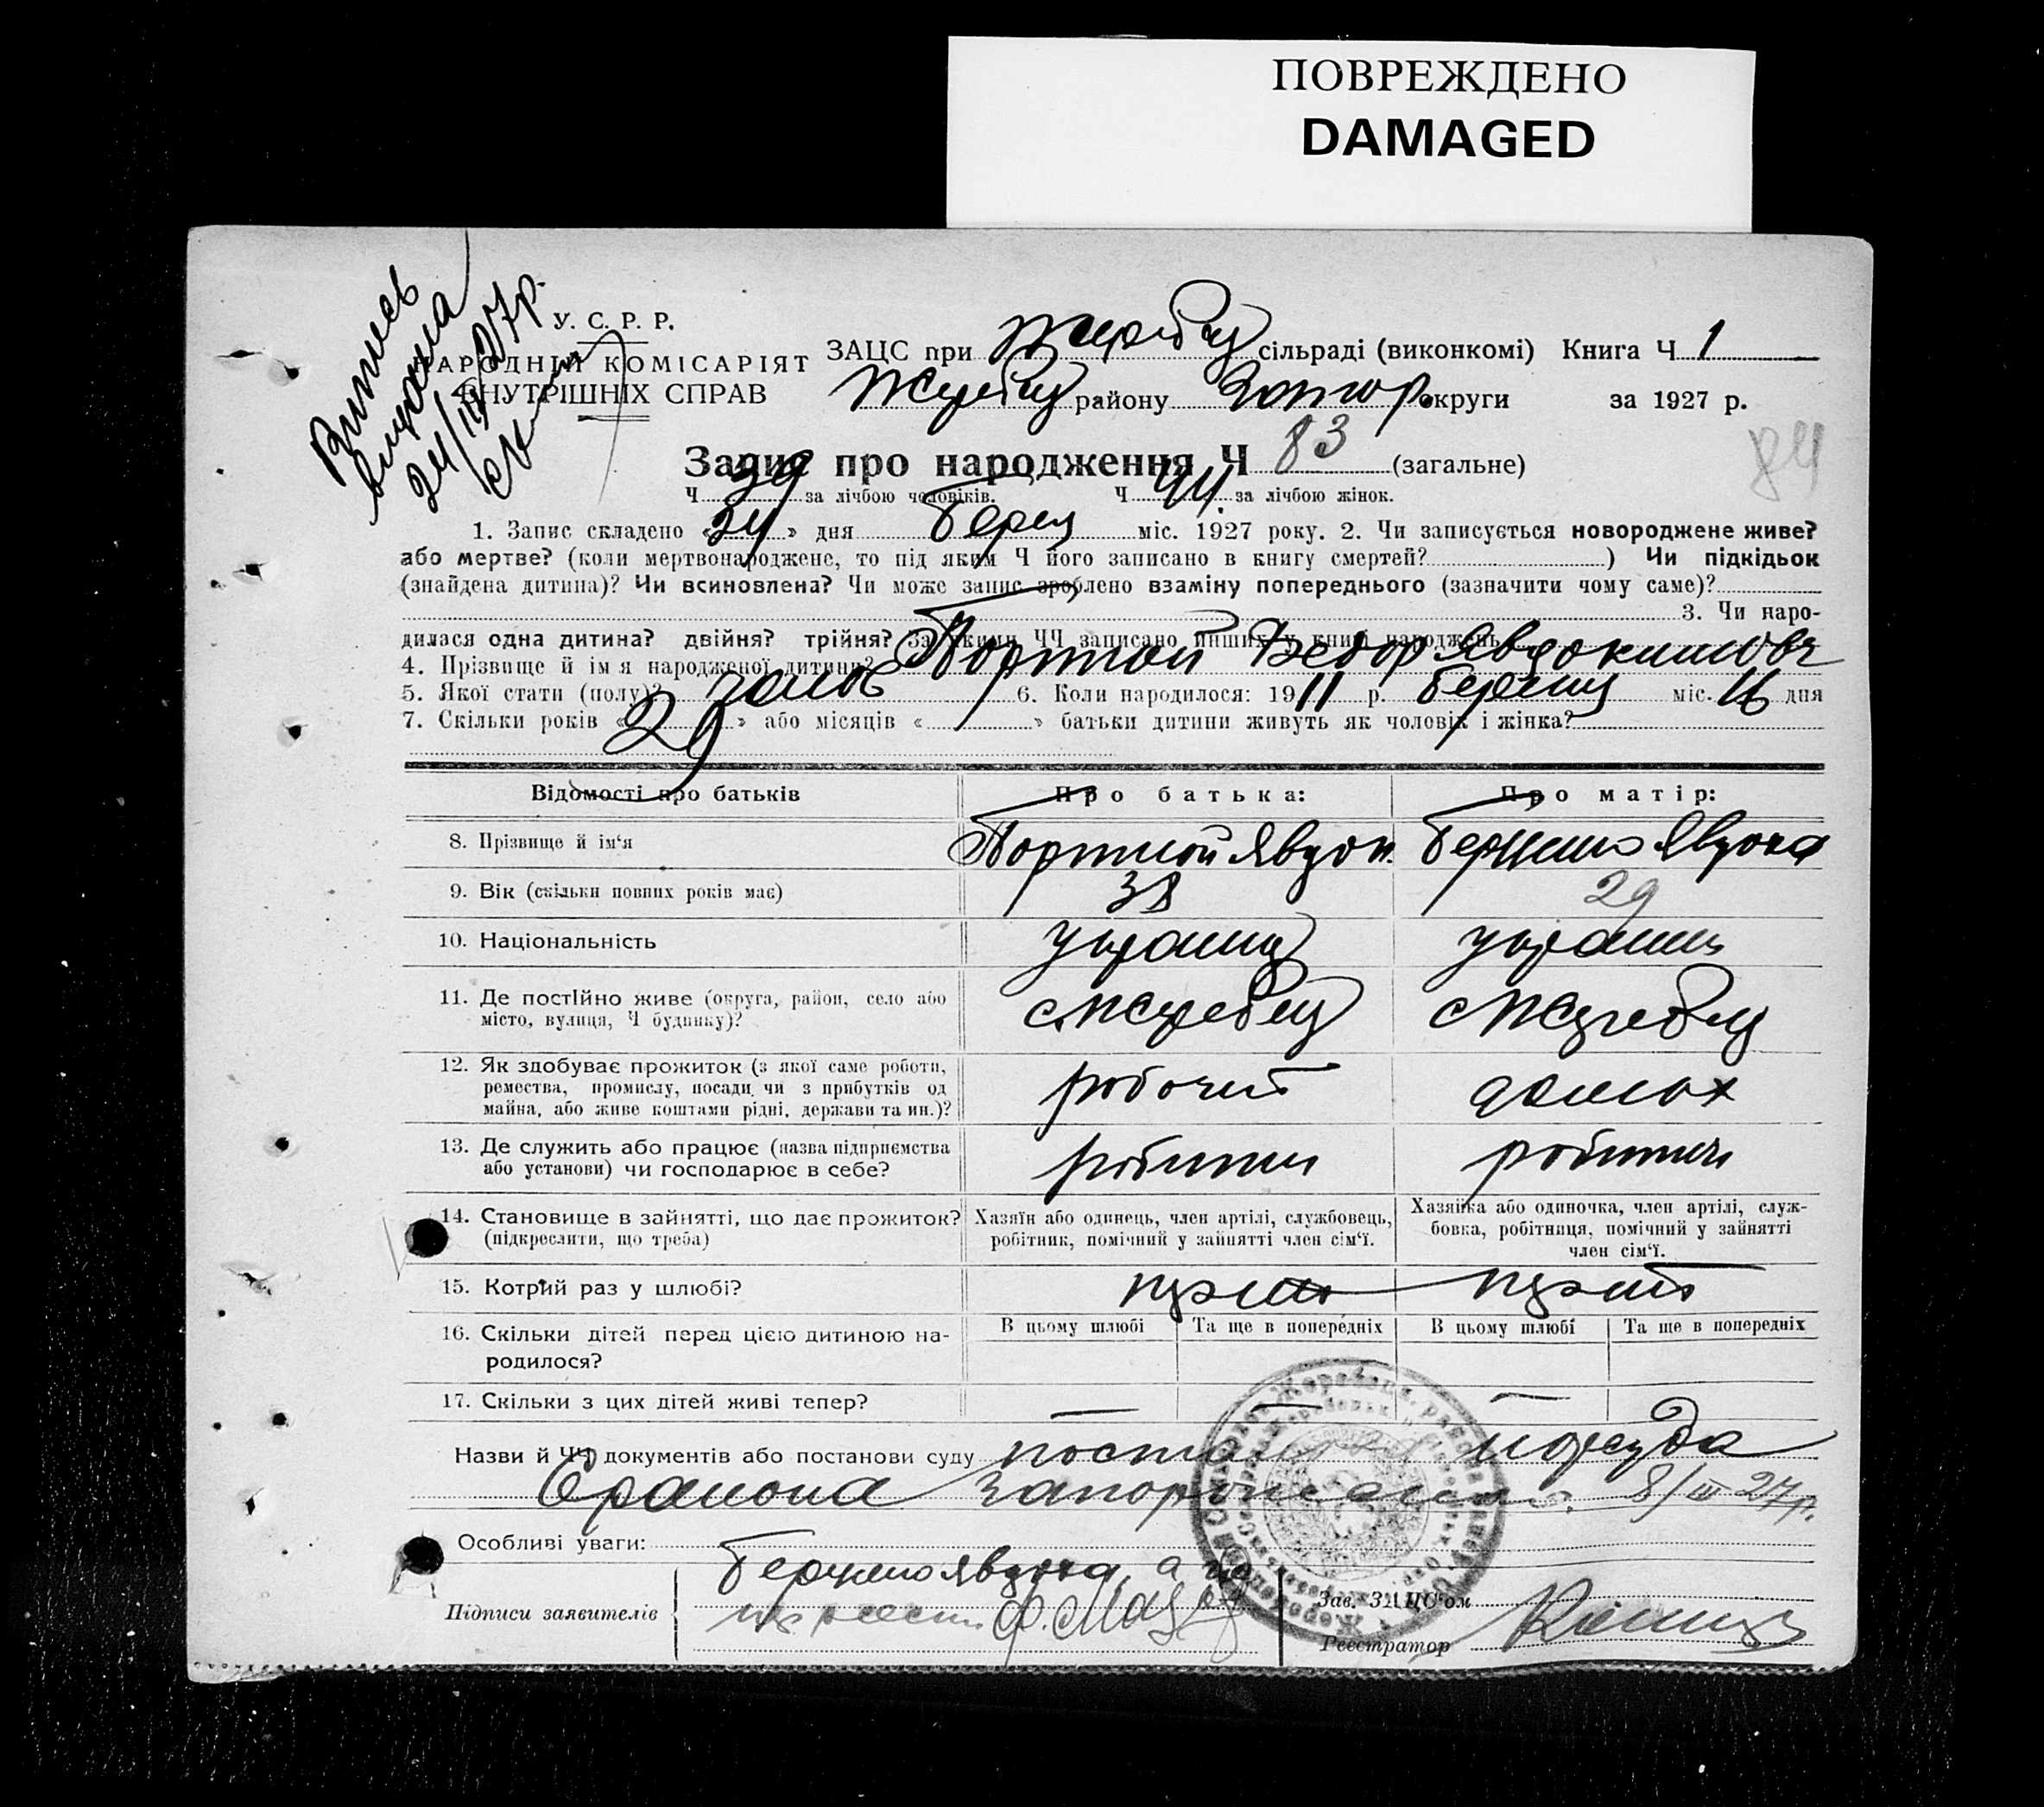 ПОВРЕЖДЕНО
DAMAGED
Випись
видана
24/III 27р.
У. С. Р. Р.
НАРОДНІЙ КОМІСАРІЯТ
ВНУТРІШНІХ СПРАВ
ЗАЦС при Жеребец сільраді (виконкомі) Книга Ч 1
Жеребец району Запор округи за 1927 р.
Запис про народження Ч 83 (загальне)
84
Ч 39 за лічбою чоловіків. Ч 44 за лічбою жінок.
1. Запис складено «24» дня Берез міс. 1927 року. 2. Чи записується новороджене живе?
або мертве? (коли мертвонароджене, то під яким Ч його записано в книгу смертей? ) Чи підкідьок
(знайдена дитина)? Чи всиновлена? Чи може запис зроблено взаміну попереднього (зазначити чому саме)?
3. Чи наро-
дилася одна дитина? двійня? трійня? За якими ЧЧ записано инших у книзі народжень
4. Прізвище й ім'я народженої дитини? Портной Федор Явдокимовч
5. Якої стати (полу)? 6. Коли народилося: 1911 р. березня міс. 16 дня
7. Скільки років «29» або місяців « » батьки дитини живуть як чоловік і жінка?
Відомості про батьків Про батька: Про матір:
8. Прізвище й ім'я Портной Явдок. Берценко Явдоха
9. Вік (скільки повних років має) 38 29
10. Національність україн україн
11. Де постійно живе (округа, район, село або
місто, вулиця, Ч будинку)? с Жеребец с Жеребец
12. Як здобуває прожиток (з якої саме роботи,
ремества, промислу, посади чи з прибутків од
майна, або живе коштами рідні, держави та ин.)? робочий домох
13. Де служить або працює (назва підприємства
або установи) чи господарює в себе?
14. Становище в зайнятті, що дає прожиток?
(підкреслити, що треба)
Хазяїн або одинець, член артілі, службовець,
робітник, помічний у зайнятті член сім'ї.
Хазяйка або одиночка, член артілі, служ-
бовка, робітниця, помічний у зайнятті
член сім'ї.
15. Котрий раз у шлюбі?
16. Скільки дітей перед цією дитиною на-
родилося?
В цьому шлюбі Та ще в попередніх В цьому шлюбі Та ще в попередніх
17. Скільки з цих дітей живі тепер?
Назви й ЧЧ документів або постанови суду нарсуда
8/III 27р.
Особливі уваги:
Підписи заявителів Явдоха, а
Зав. ЗАЦС'ом
Реєстратор